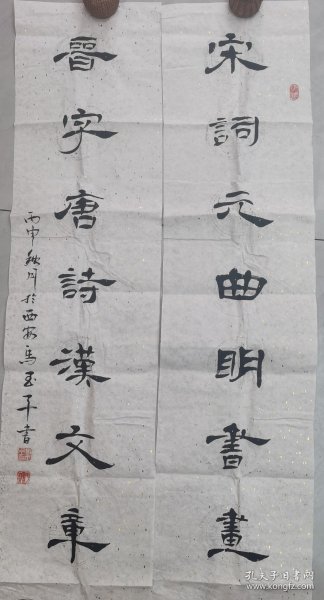 宋詞元曲明書畫
晋字唐詩漢文章
丙申秋月於西安馬玉平書
孔夫子旧书网
www.kongfz.com